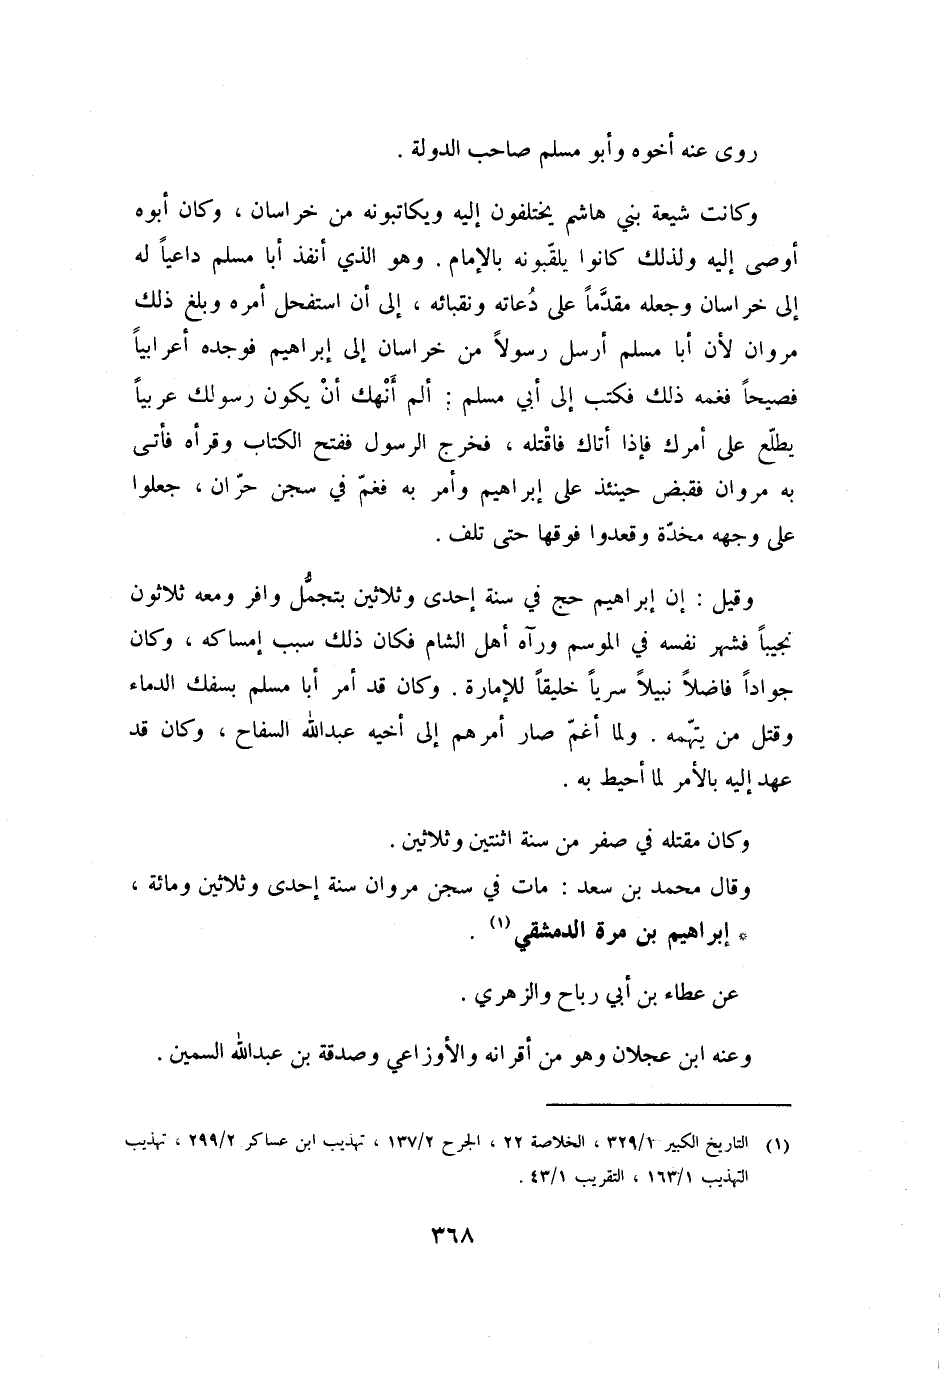 روى عنه أخوه وأبو مسلم صاحب الدولة .
وكانت شيعة بني هاشم يختلفون إليه ويكاتبونه من خراسان ، وكان أبوه
أوصى إليه ولذلك كانوا يلقّبونه بالإمام . وهو الذي أنفذ أبا مسلم داعياً له
إلى خراسان وجعله مقدَّماً على دُعاته ونقبائه ، إلى أن استفحل أمره وبلغ ذلك
مروان لأن أبا مسلم أرسل رسولاً من خراسان إلى إبراهيم فوجده أعرابياً
فصيحاً فغمه ذلك فكتب إلى أبي مسلم : ألم أَنْهك أنْ يكون رسولك عربياً
يطلّع على أمرك فإذا أتاك فاقْتله ، فخرج الرسول ففتح الكتاب وقرأه فأتى
به مروان فقبض حينئذ على إبراهيم وأمر به فغمّ في سجن حرّان ، جعلوا
على وجهه مخدّة وقعدوا فوقها حتى تلف .
وقيل : إن إبراهيم حج في سنة إحدى وثلاثين بتجمُّل وافر ومعه ثلاثون
نجيباً فشهر نفسه في الموسم ورآه أهل الشام فكان ذلك سبب إمساكه ، وكان
جواداً فاضلاً نبيلاً سرياً خليقاً للإمارة . وكان قد أمر أبا مسلم بسفك الدماء
وقتل من يتّهمه . ولما أغمّ صار أمرهم إلى أخيه عبدالله السفاح ، وكان قد
عهد إليه بالأمر لما أحيط به .
وكان مقتله في صفر من سنة اثنتين وثلاثين .
وقال محمد بن سعد : مات في سجن مروان سنة إحدى وثلاثين ومائة ،
* إبراهيم بن مرة الدمشقي (١) .
عن عطاء بن أبي رباح والزهري .
وعنه ابن عجلان وهو من أقرانه والأوزاعي وصدقة بن عبدالله السمين .
(١) التاريخ الكبير ٣٢٩/١ ، الخلاصة ٢٢ ، الجرح ١٣٧/٢ ، تهذيب ابن عساكر ٢٩٩/٢ ، تهذيب
التهذيب ١٦٣/١ ، التقريب ٤٣/١ .
٣٦٨